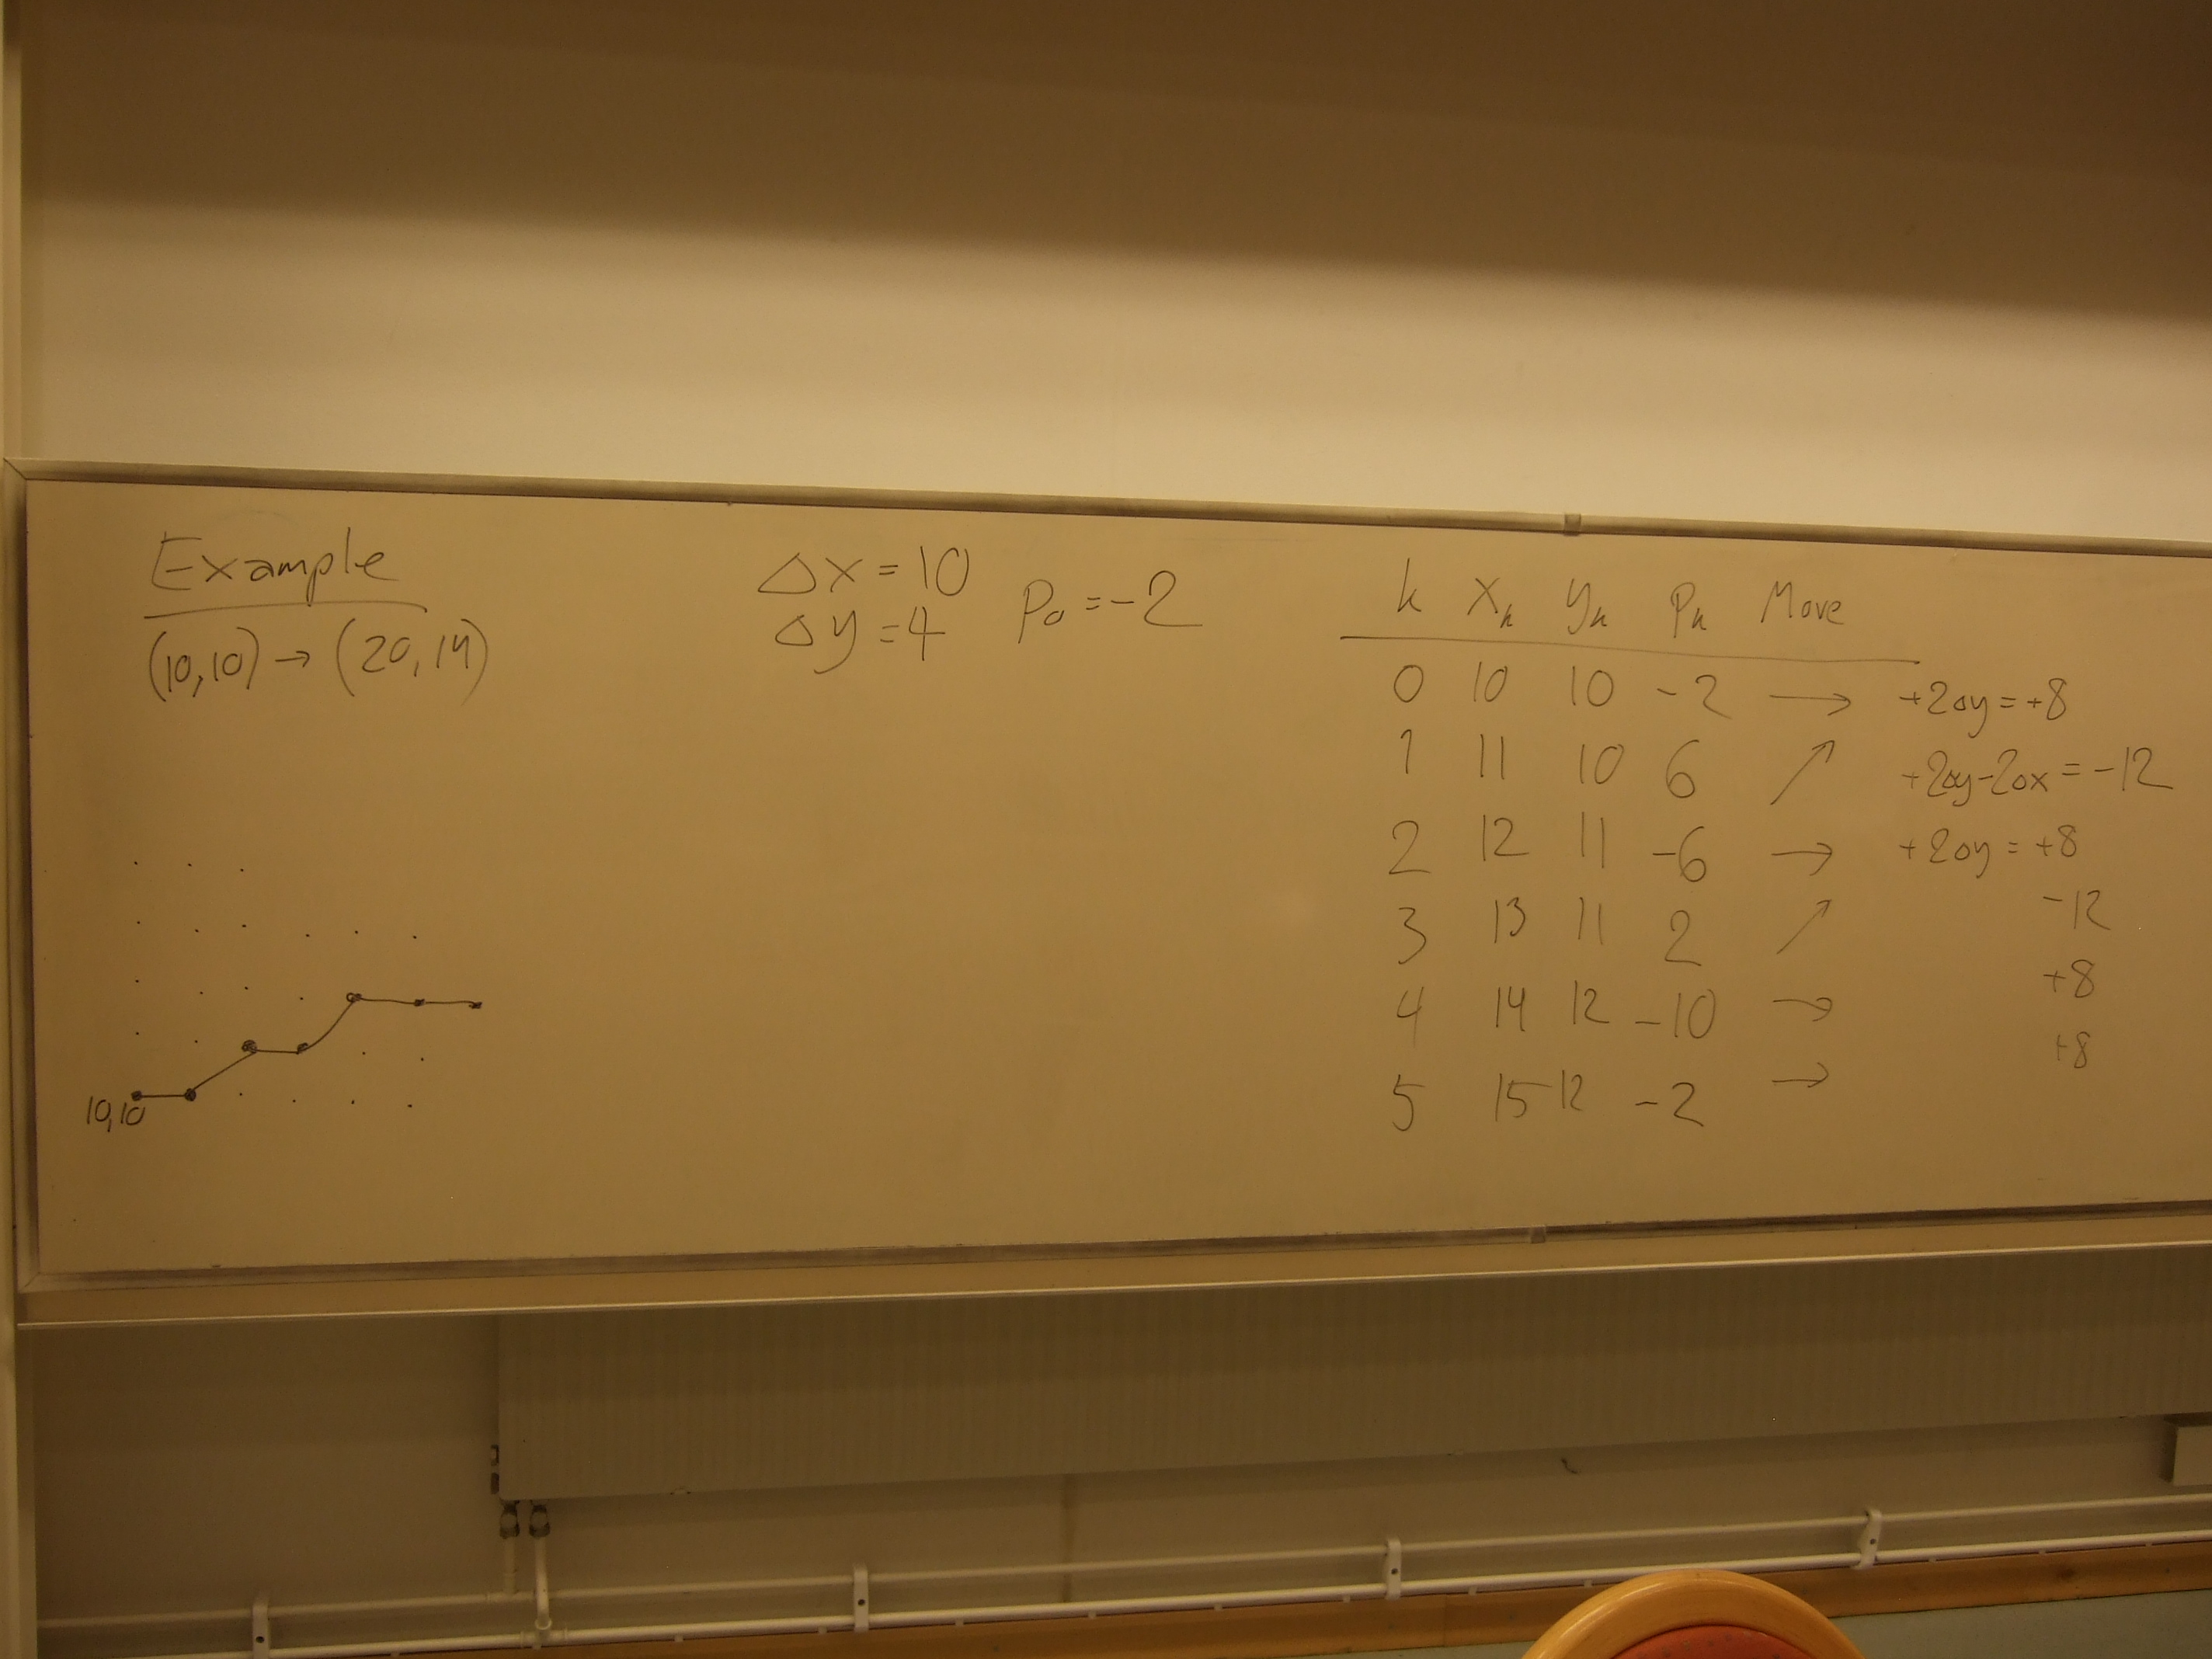 Example
(10,10) → (20,14)
10,10
Δx = 10
Δy = 4
p₀ = -2
k xₖ yₖ pₖ Move
0 10 10 -2 → +2Δy = +8
1 11 10 6 ↗ +2Δy-2Δx = -12
2 12 11 -6 → +2Δy = +8
3 13 11 2 ↗ -12
4 14 12 -10 → +8
5 15 12 -2 → +8